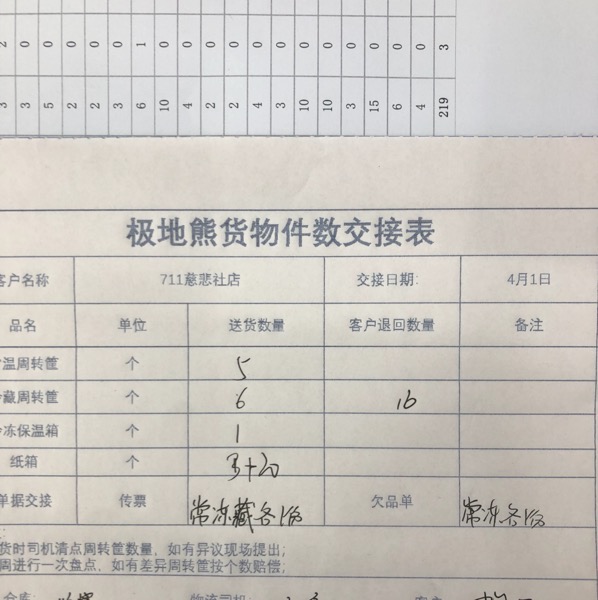 2 0 0 0 0 0 1 0 0 0 0 0 0 0 0 0 0 0 0 3
3 3 5 2 2 3 6 10 4 2 2 4 3 10 10 3 15 6 4 219
极地熊货物件数交接表
客户名称 711慈悲社店 交接日期: 4月1日
品名 单位 送货数量 客户退回数量 备注
温周转筐 个 5
藏周转筐 个 6 16
冷冻保温箱 个 1
纸箱 个
单据交接 传票 常冻藏各1份 欠品单 常冻各1份
货时司机清点周转筐数量，如有异议现场提出；
周进行一次盘点，如有差异周转筐按个数赔偿；
仓库: 物流司机: